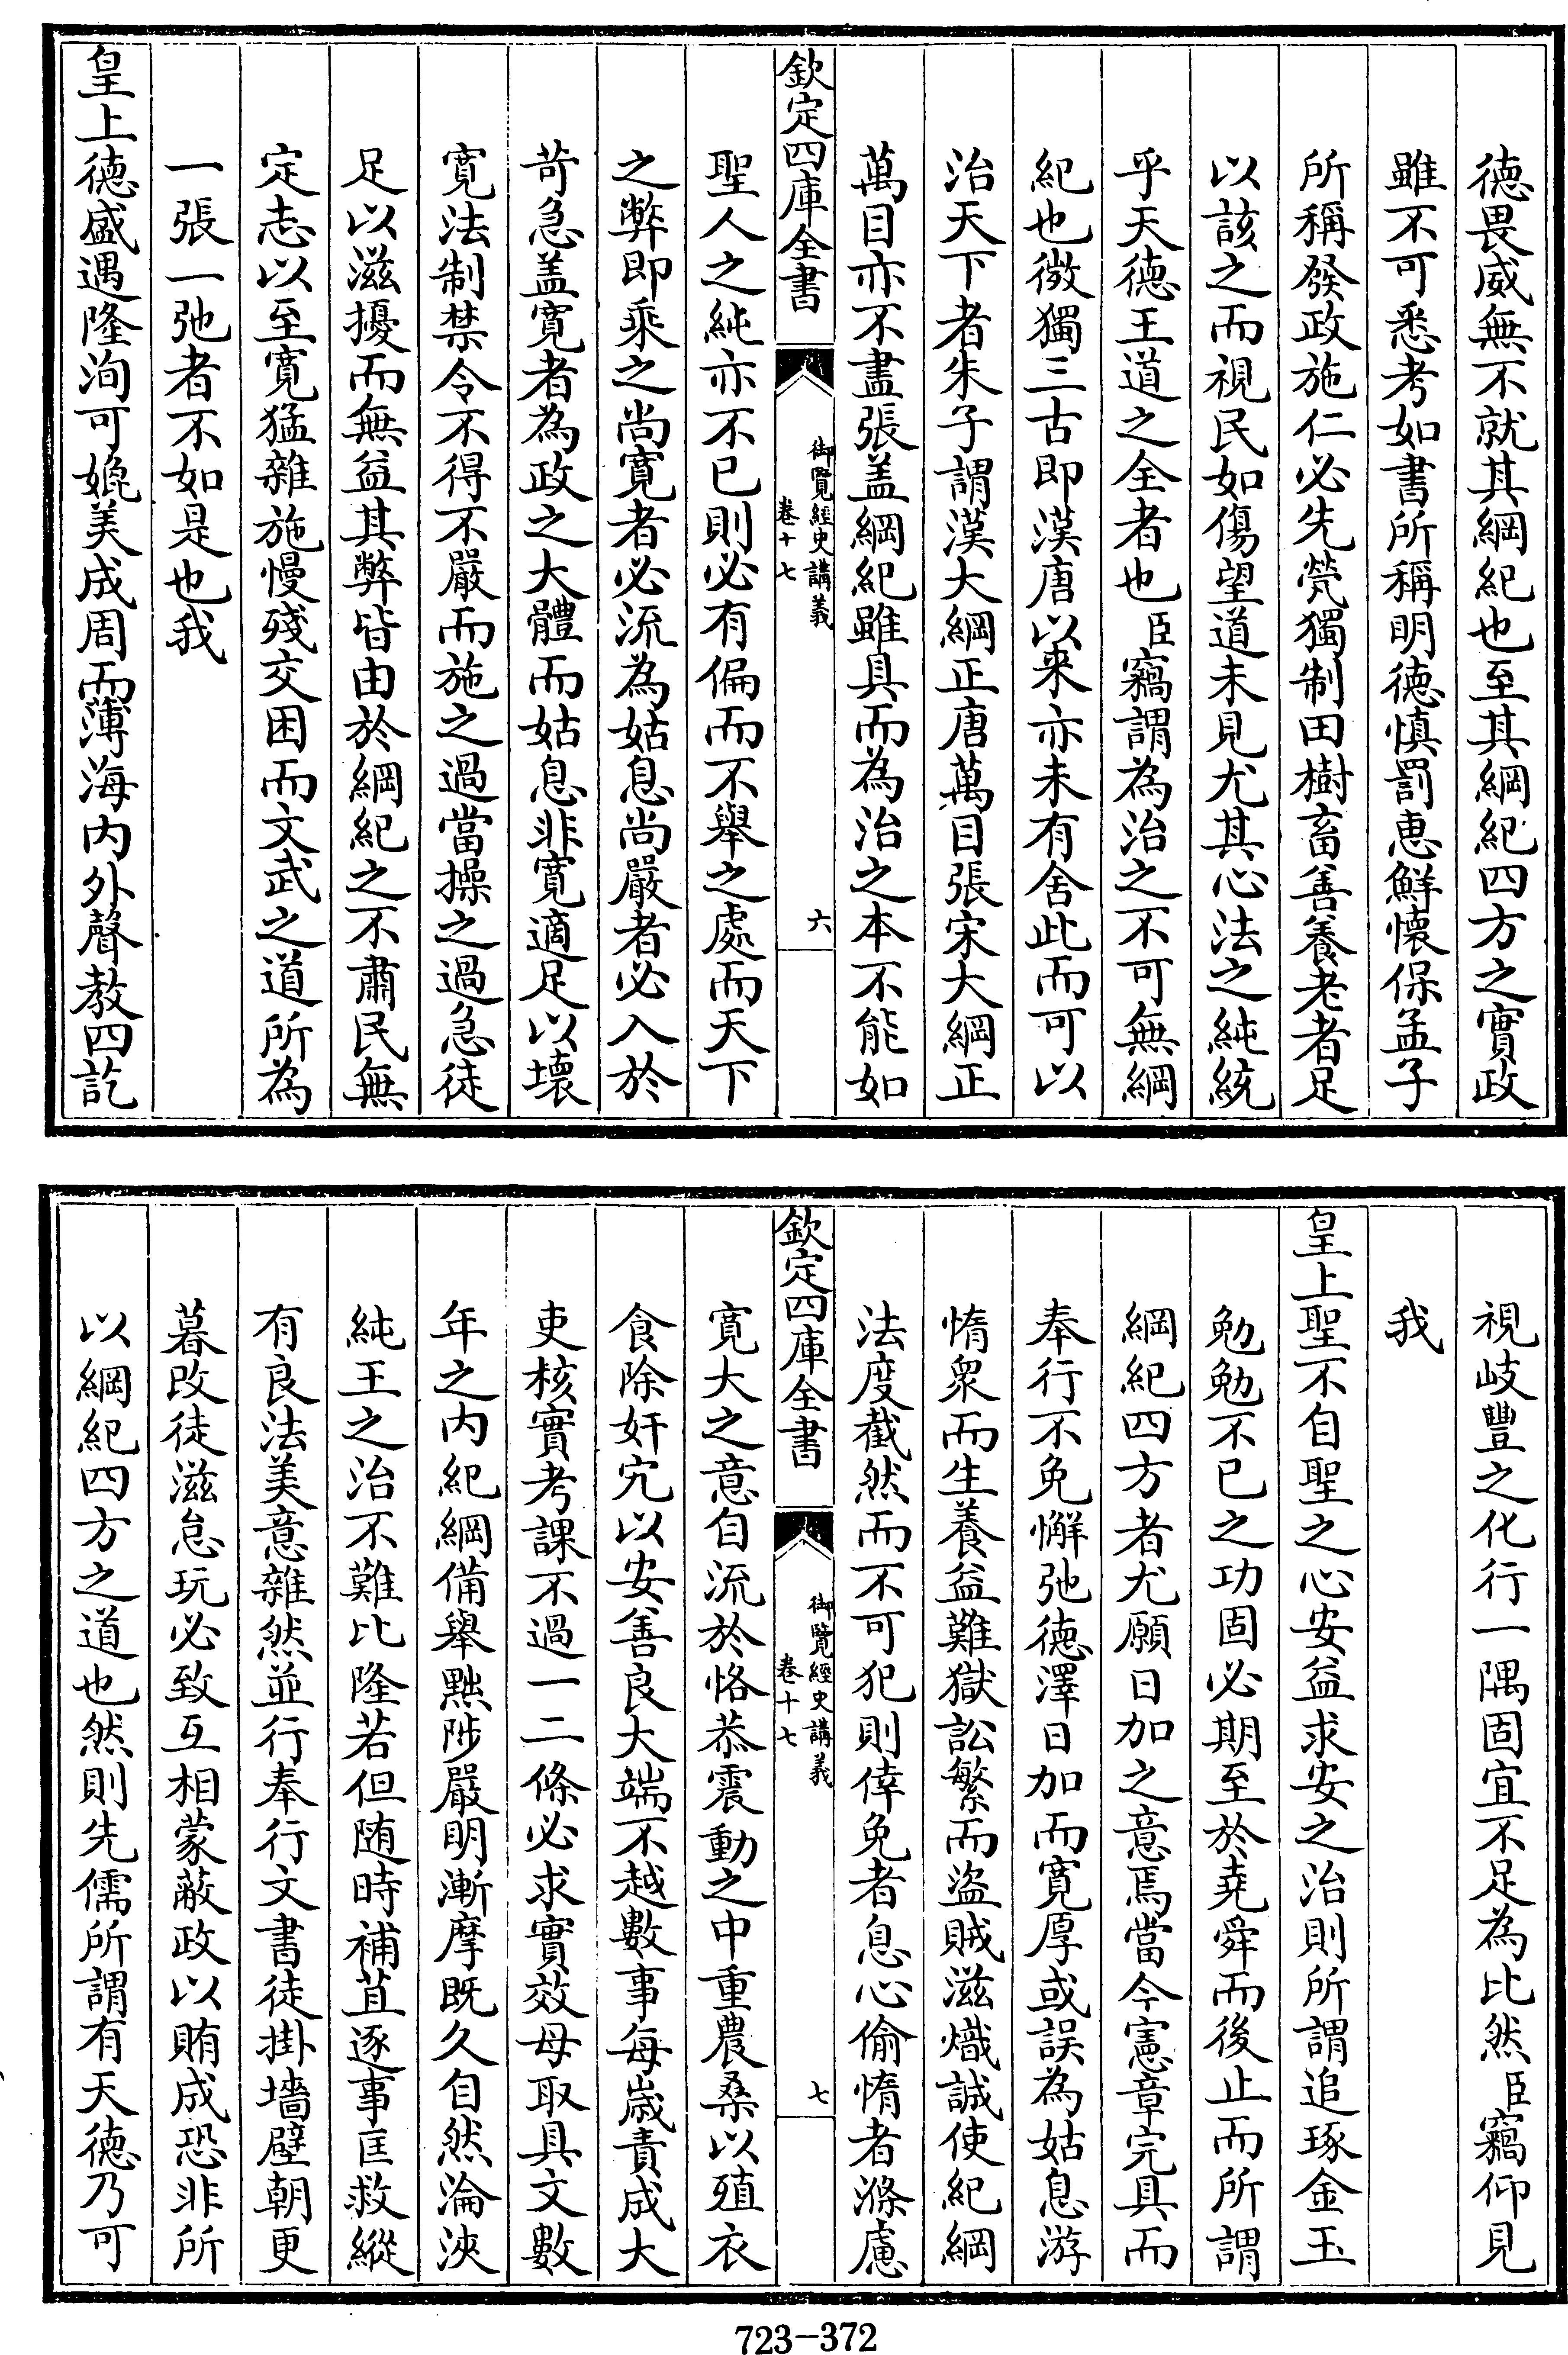 德畏威無不就其綱紀也至其綱紀四方之實政
雖不可悉考如書所稱明德慎罰惠鮮懷保孟子
所稱發政施仁必先煢獨制田樹畜善養老者足
以該之而視民如傷望道未見尤其心法之純統
乎天德王道之全者也臣竊謂為治之不可無綱
紀也微獨三古即漢唐以来亦未有舍此而可以
治天下者朱子謂漢大綱正唐萬目張宋大綱正
萬目亦不盡張盖綱紀雖具而為治之本不能如
欽定四庫全書
御覽經史講義
卷十七
六
聖人之純亦不已則必有偏而不舉之處而天下
之弊即乘之尚寛者必流為姑息尚嚴者必入於
苛急盖寛者為政之大體而姑息非寛適足以壞
寛法制禁令不得不嚴而施之過當操之過急徒
足以滋擾而無益其弊皆由於綱紀之不肅民無
定志以至寛猛雜施慢殘交困而文武之道所為
一張一弛者不如是也我
皇上德盛遇隆洵可媲美成周而薄海内外聲教四訖
視岐豐之化行一隅固宜不足為比然臣竊仰見
我
皇上聖不自聖之心安益求安之治則所謂追琢金玉
勉勉不已之功固必期至於堯舜而後止而所謂
綱紀四方者尤願日加之意焉當今憲章完具而
奉行不免懈弛德澤日加而寛厚或誤為姑息游
惰衆而生養益難獄訟繁而盜賊滋熾誠使紀綱
法度截然而不可犯則倖免者息心偷惰者滌慮
欽定四庫全書
御覽經史講義
卷十七
七
寛大之意自流於恪恭震動之中重農桑以殖衣
食除奸宄以安善良大端不越數事每嵗責成大
吏核實考課不過一二條必求實效毋取具文數
年之内紀綱備舉黜陟嚴明漸摩既久自然淪浹
純王之治不難比隆若但随時補苴逐事匡救縱
有良法美意雜然並行奉行文書徒掛墻壁朝更
暮改徒滋怠玩必致互相蒙蔽政以賄成恐非所
以綱紀四方之道也然則先儒所謂有天德乃可
723-372